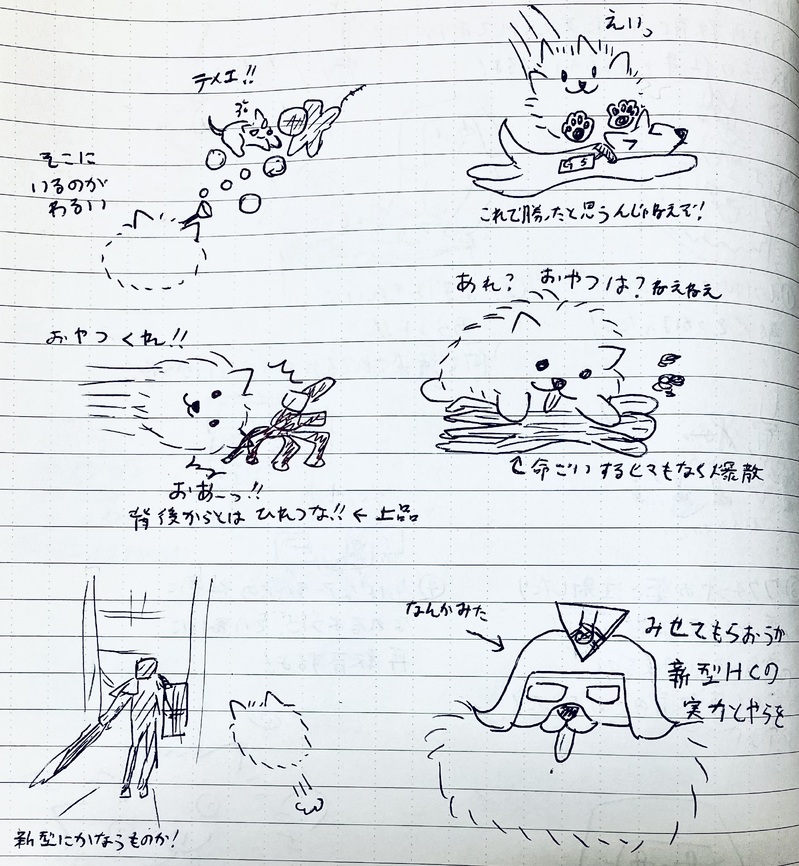 テメエ!!
そこに
いるのが
わるい
えいっ
これで勝ったと思うんじゃねえぞ!
おやつくれ!!
おあーっ!!
背後からとは ひれつな!! ← 上品
あれ? おやつは? ねえねえ
↑命ごいするヒマもなく爆散
新型にかなうものか!
なんかみた
みせてもらおうか
新型HCの
実力とやらを